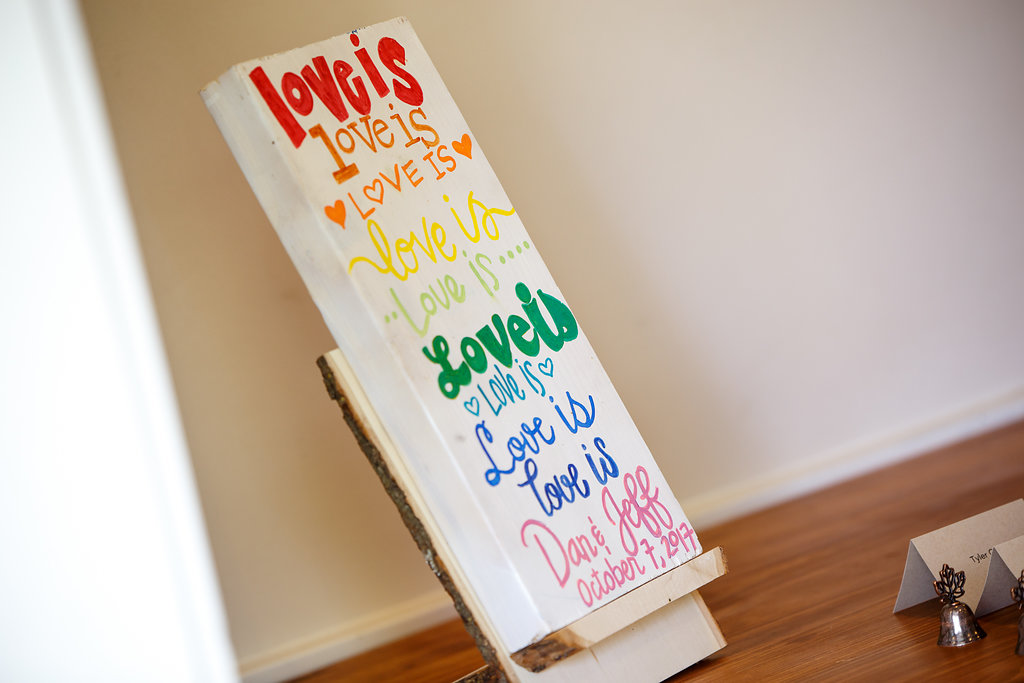 love is
love is
LOVE IS
love is
Love is
Love is
LOVE is
Love is
love is
Dan & Jeff
October 7, 2017
Tyler